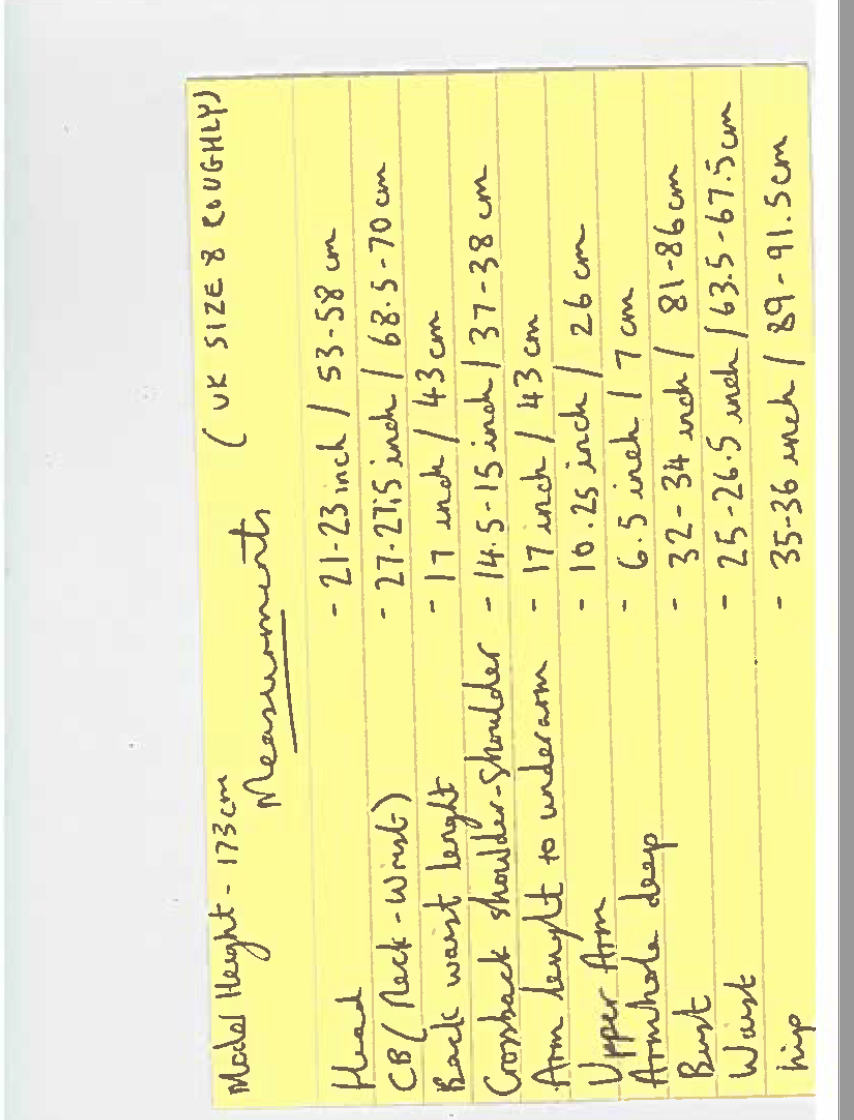 Model Height - 173cm (UK SIZE 8 ROUGHLY)
Measurments
Head - 21-23 inch / 53-58 cm
CB (Neck - Wrist) - 27-27.5 inch / 68.5-70 cm
Back waist lenght - 17 inch / 43 cm
Crossback shoulder-shoulder - 14.5-15 inch / 37-38 cm
Arm lenght to underarm - 17 inch / 43 cm
Upper Arm - 10.25 inch / 26 cm
Armhole deep - 6.5 inch / 7 cm
Bust - 32-34 inch / 81-86 cm
Waist - 25-26.5 inch / 63.5-67.5 cm
hip - 35-36 inch / 89-91.5 cm